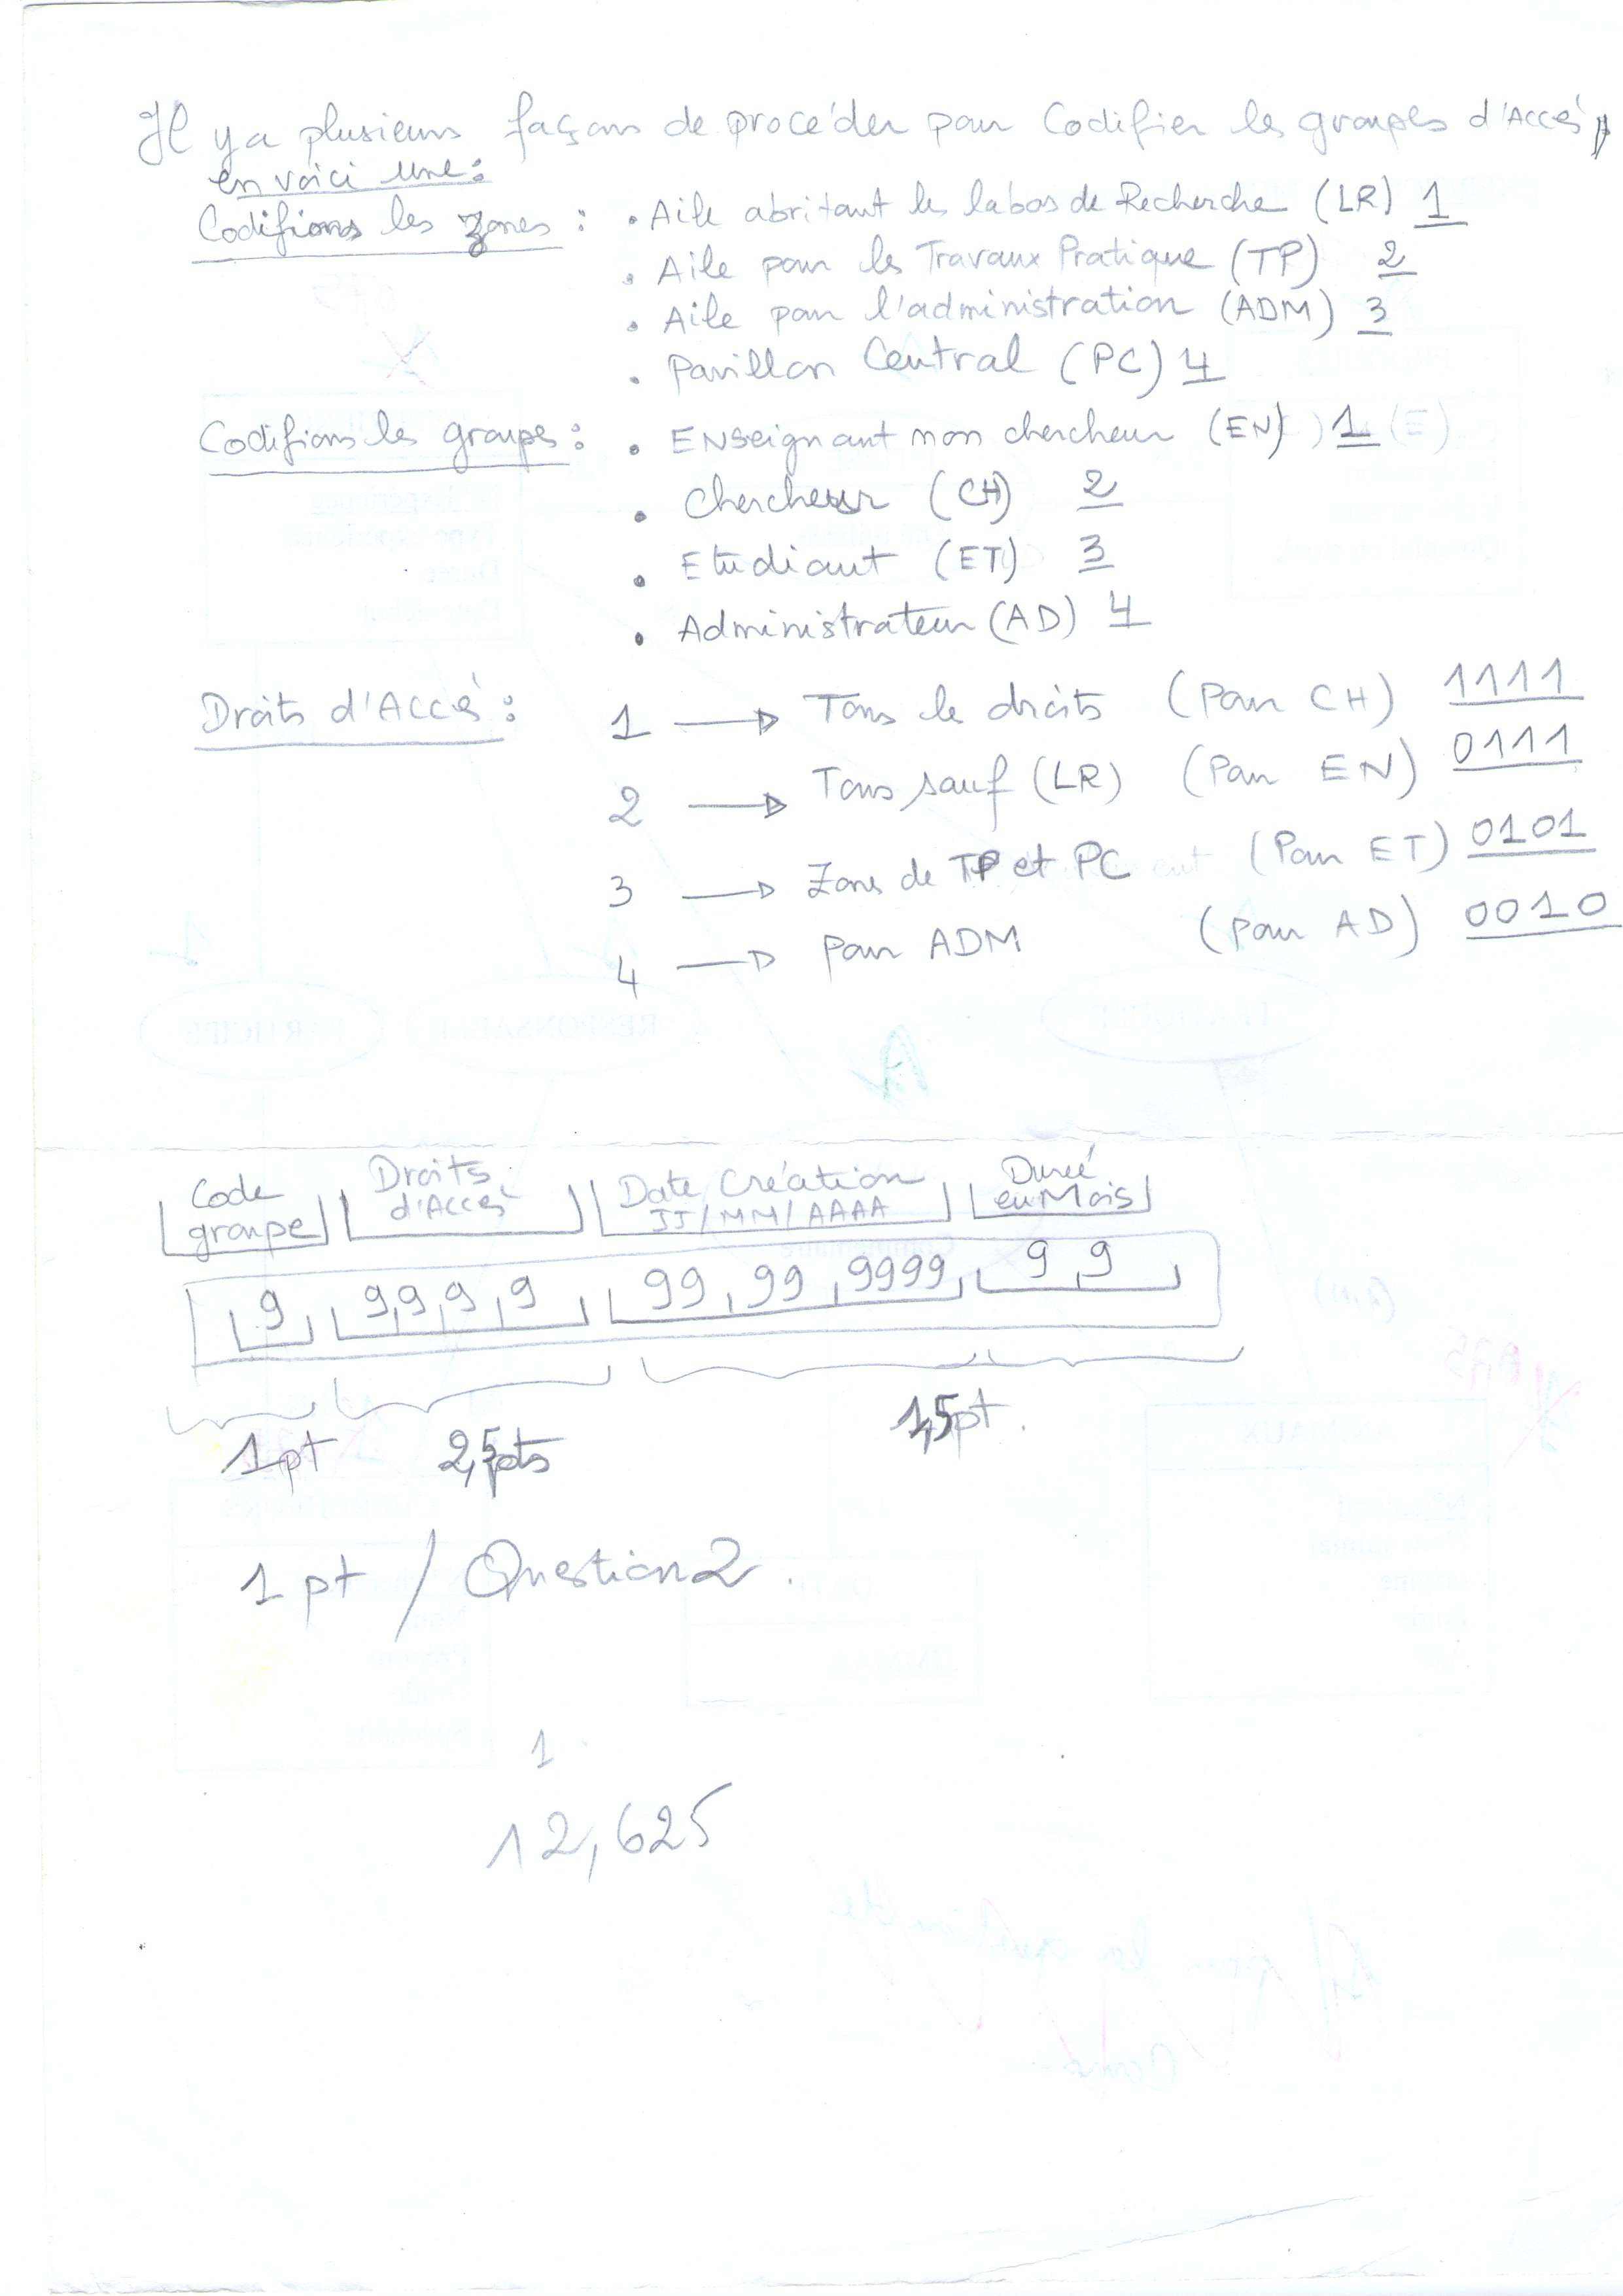 Il y a plusieurs façons de procéder pour Codifier les groupes d'Accès,
en voici une :
Codifions les zones : • Aile abritant les labos de Recherche (LR) 1
• Aile pour les Travaux Pratique (TP) 2
• Aile pour l'administration (ADM) 3
• Pavillon Central (PC) 4
Codifions les groupes : • ENseignant non chercheur (EN) 1
• Chercheur (CH) 2
• Etudiant (ET) 3
• Administrateur (AD) 4
Droits d'Accès : 1 → Tous le droits (Pour CH) 1111
2 → Tous sauf (LR) (Pour EN) 0111
3 → Zones de TP et PC (Pour ET) 0101
4 → pour ADM (pour AD) 0010
Code groupe Droits d'Accès Date Création JJ/MM/AAAA Durée en Mois
9 9,9,9,9 99,99,9999 9,9
1pt 2,5pts 1,5pt.
1 pt / Question 2.
1
12,625